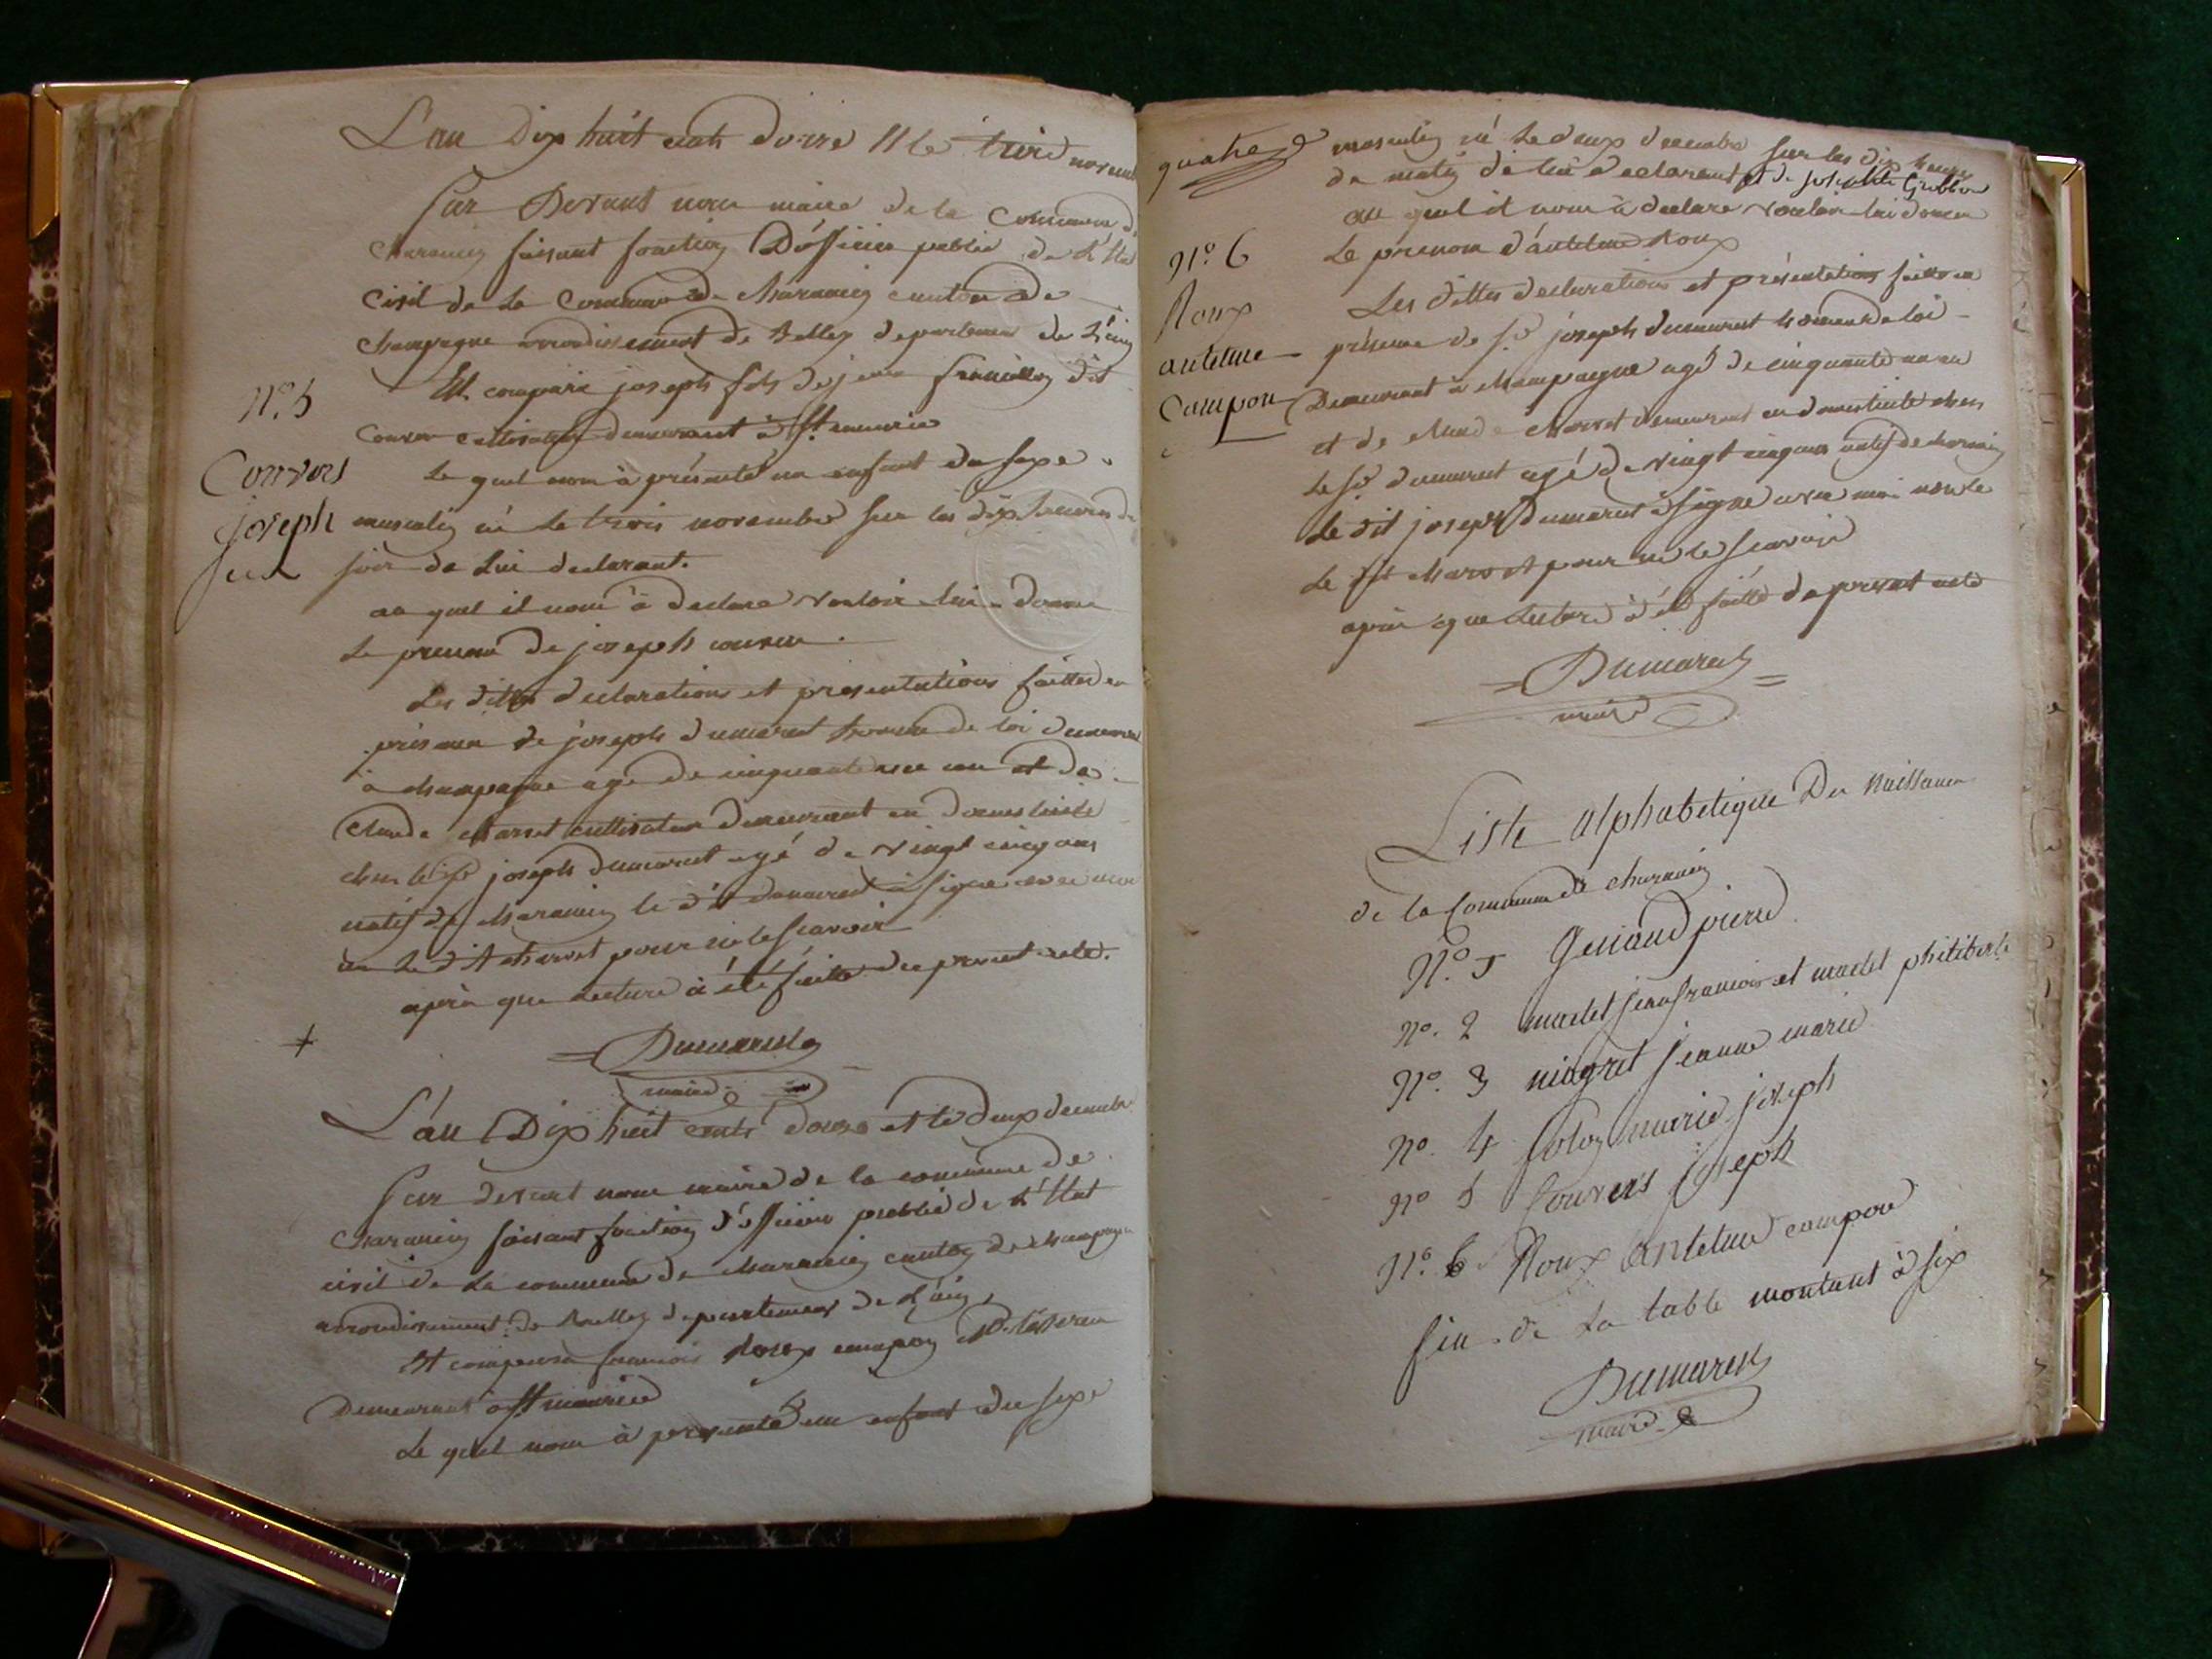 L'an Dix huit cents douze et le trois novemb
Par Devant nous maire de la Commune de
Charancin faisant fonction D'officier public de L'Etat
Civil de la Commune de Charancin canton de
Champagne arrondissement de Belley departement de L'ain
Est comparu joseph fils de jean
Conver cultivateur demeurant à St maurice
N° 5
Convers
joseph
Le quel nous à présenté un enfant du sexe
masculin né le trois novembre sur les dix heures du
soir de Lui declarant.
au quel il nous à declaré vouloir lui donner
Le prenom de joseph conver.
Les dittes declarations et presentations faittes en
présence de joseph dumarest homme de loi demeurant
à champagne agé de cinquante un an et de
Claude Charvet cultivateur demeurant en domesticité
chez le Sr joseph dumarest agé de vingt cinq ans
natif de Charancin le dit dumarest à signé avec moi
le dit Charvet pour ne le scavoir
après que Lecture à été faitte du present acte.
Dumarest
maire
L'an Dix huit cents douze et le deux decembre
Par devant nous maire de la commune de
Charancin faisant fonction d'officier public de L'Etat
civil de La commune de Charancin canton de champagne
arrondissement de Belley departement de L'ain,
Est comparu francois Roux campon
Demeurant à St maurice
Le quel nous à presenté un enfant du sexe
quatre
masculin né Le deux decembre sur les dix heures
du matin de lui declarant et de
au quel il nous à declaré vouloir lui donner
Le prenom d'antelme Roux
N° 6
Roux
antelme
Campon
Les dittes declarations et présentations faittes en
présence de Sr joseph dumarest homme de loi
Demeurant à Champagne agé de cinquante un an
et de Claude Charvet demeurant en domesticité chez
Le Sr dumarest agé de vingt cinq ans natif de charancin
Le dit joseph dumarest à signé avec moi non le
Le dit Charvet pour ne le scavoir
après que Lecture à été faitte du present acte
Dumarest
maire
Liste alphabetique Des Naissances
de la Commune de Charancin
N°. 1 Genand pierre
N°. 2 martet jean francois et martet philiberte
N°. 3 niogret jeanne marie
N°. 4 marie joseph
N° 5 Convers joseph
N°. 6 Roux antelme campon
fin de La table montant à six
Dumarest
maire